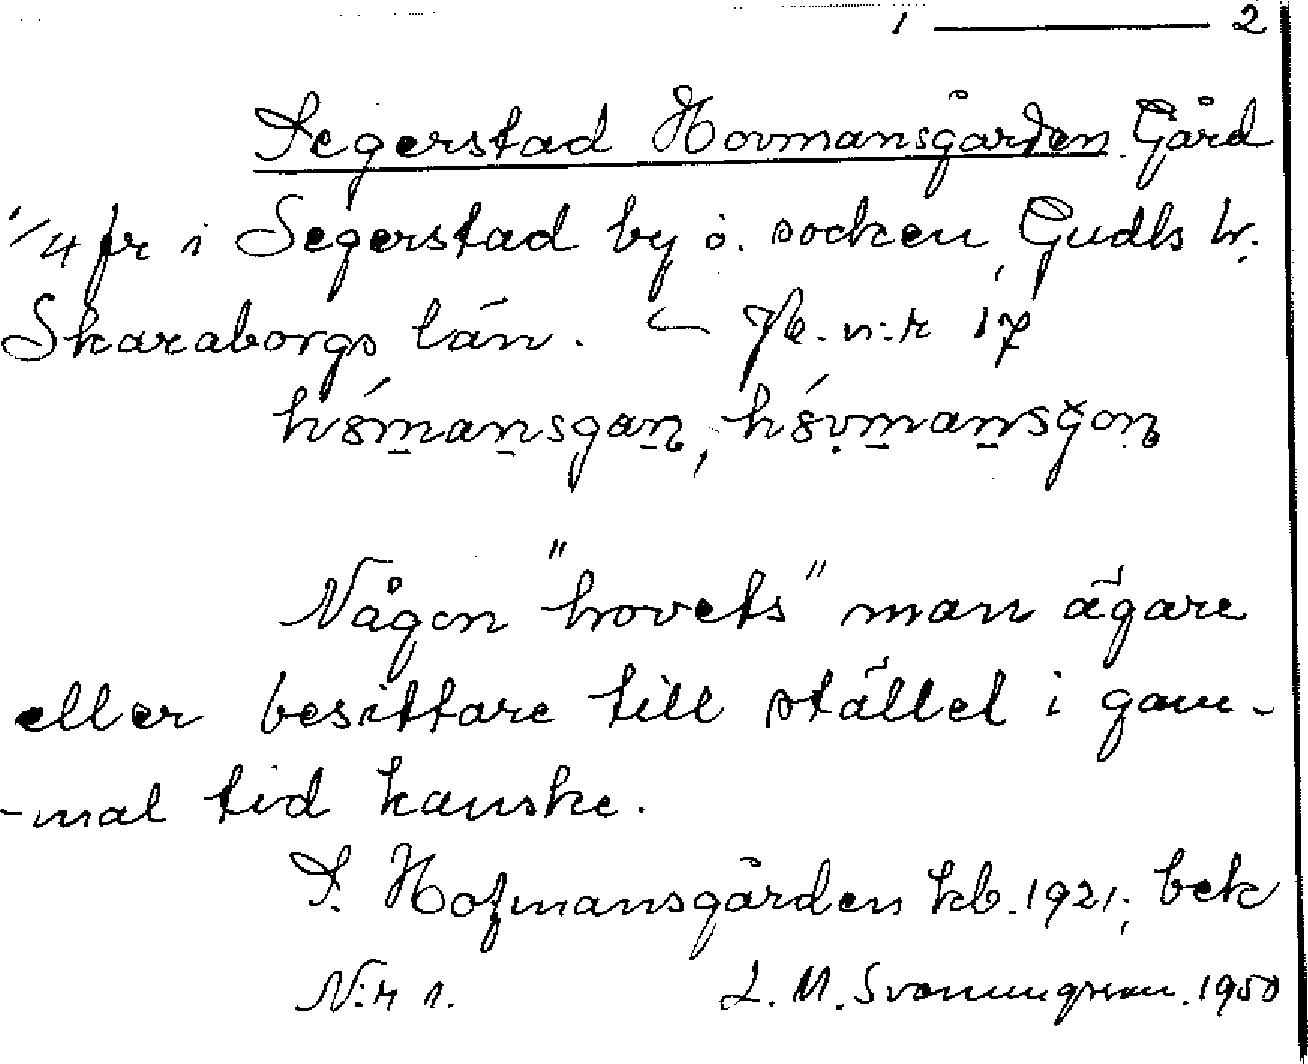 1 ——— 2
Segerstad Hovmansgården. Gård
1/4 fr i Segerstad by o. socken, Gudh hr.
Skaraborgs län. — Jb. n:r 17
Någon "hovets" man ägare
eller besittare till stället i gam-
-mal tid kanske.
S. Hofmansgården kb. 1921; bek
N:r 1. L. M. Svanungsson. 1950